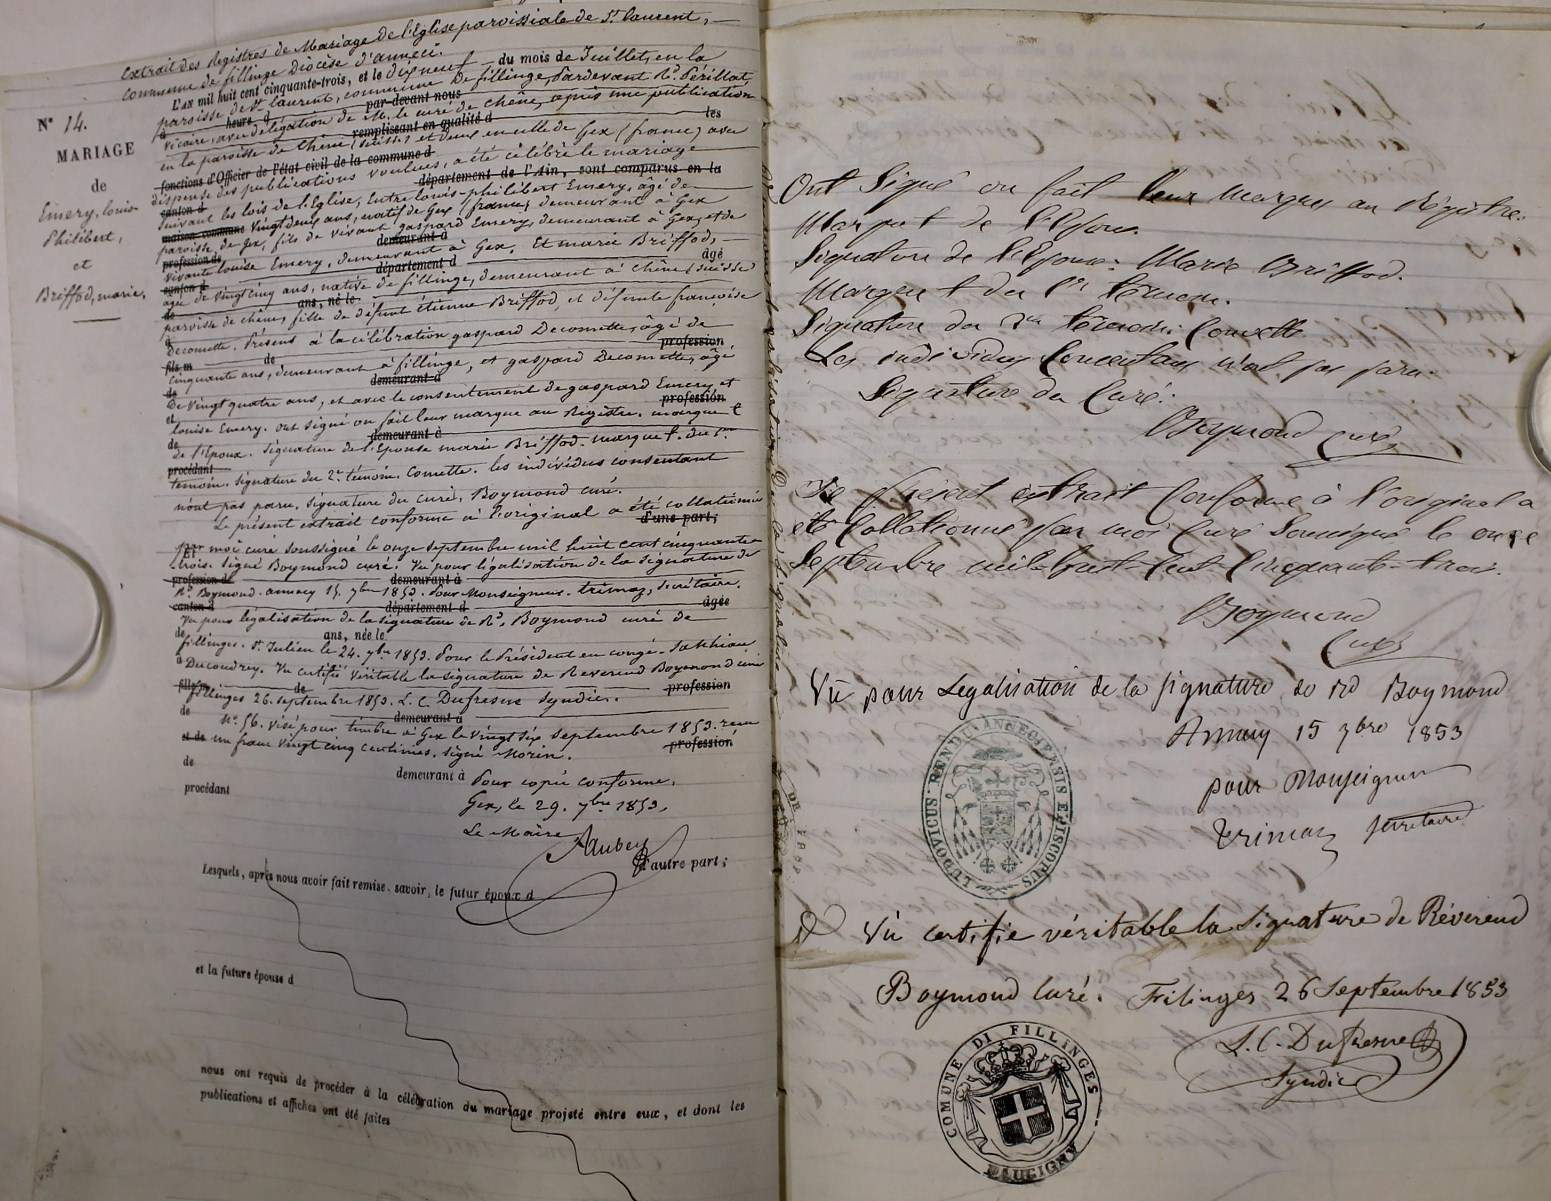 Extrait des Registres de Mariage de l'Eglise paroissiale de St. Laurent,
Commune de fillinge Diocèse d'annecî.
L'an mil huit cent cinquante-trois, et le dix neuf du mois de Juillet, en la
paroisse de St. laurent, commune De fillinge, Pardevant Rd. Périllat,
à heure d par-devant nous
vicaire, avec délégation de M. le curé de chêne, après une publication
remplissant en qualité d les
en la paroisse de chêne, (suisse) et deux en celle de Gex (france) avec
fonctions d'Officier de l'état civil de la commune d
dispense des publications voulues, a été célébré le mariage
canton d département de l'Ain, sont comparus en la
suivant les lois de l'Eglise, Entre louis-philibert Emery, âgé de
maison commune vingt deux ans, natif de Gex (france) demeurant à Gex
paroisse de Gex, fils de vivant gaspard Emery, demeurant à Gex, et de
profession de demeurant à
vivante louise Emery, demeurant à Gex. Et marie Briffod,
canton d département d âgé
âgée de vingt cinq ans, native de fillinge, demeurant à chêne (suisse
de ans, né le
paroisse de chêne, fille de défunt étienne Briffod, et défunte françoise
à
Decomette. Présens à la célébration gaspard Decomette, âgé de
fils m de profession
cinquante ans, demeurant à fillinge, et gaspard Decomette, âgé
de demeurant à
De vingt quatre ans, et avec le consentement de gaspard Emery et
et profession
louise Emery. ont signé ou fait leur marque au Registre. marque t
de demeurant à
de l'Epoux. signature de l'Epouse marie Briffod. marque t. du 1er
procédant
temoin. signature du 2e. témoin. Comette. les individus consentant
n'ont pas paru, signature du curé, Boymond curé.
Le présent extrait conforme à l'original a été collationné
d'une part;
par moi curé soussigné le onze septembre mil huit cent cinquante
Et
trois. Signé Boymond curé. Vu pour légalisation de la signature de
profession de demeurant à
Rd. Boymond. annecy 15. 7bre 1853. Pour Monseigneur. trimaz, secrétaire.
canton d département d âgée
Vu pour légalisation de la signature de Rd. Boymond curé de
de ans, née le
fillinges. St. Julien le 24. 7bre 1853. Pour le Président en congé.
à
Ducoudrey. Vu certifié véritable la signature de Reverend Boymond curé
fille de profession
fillinges 26. septembre 1853. L. C. Dufresne Syndic.
de demeurant à
No. 56. visé pour timbre à Gex le vingt six septembre 1853. reçu
et de profession
un franc vingt cinq centimes. signé Morin.
de demeurant à Pour copie conforme.
procédant Gex, le 29. 7bre 1853,
Le Maire,
d'autre part;
Lesquels, après nous avoir fait remise, savoir, le futur époux d
et la future épouse d
nous ont requis de procéder à la célébration du mariage projeté entre eux, et dont les
publications et affiches ont été faites
N° 14.
MARIAGE
de
Emery, louis-
Philibert,
et
Briffod, marie,
Ont Signé ou fait leur marque au Régistre.
Marque t de l'Epoux.
Signature de l'Epouse: Marie Briffod.
Marque t du 1er témoin.
Signature du 2me témoin: Comette
Les individus Consentans n'ont pas paru.
Signature du Curé:
Boymond curé
Le présent extrait Conforme à l'original a
été Collationné par moi Curé Soussigné le onze
Septembre mil-huit-Cent-Cinquante-trois.
Boymond
Curé
Vû pour Légalisation de la signature de Rd Boymond
Annecy 15 7bre 1853
pour Monseigneur
Trimaz secretaire
LUDOVICUS RENDU ANNECIENSIS EPISCOPUS
Vû certifie véritable la signature de Révérend
Boymond Curé. Fillinges 26 Septembre 1853
L. C. Dufresne
Syndic
COMUNE DI FILLINGES
FAUCIGNY